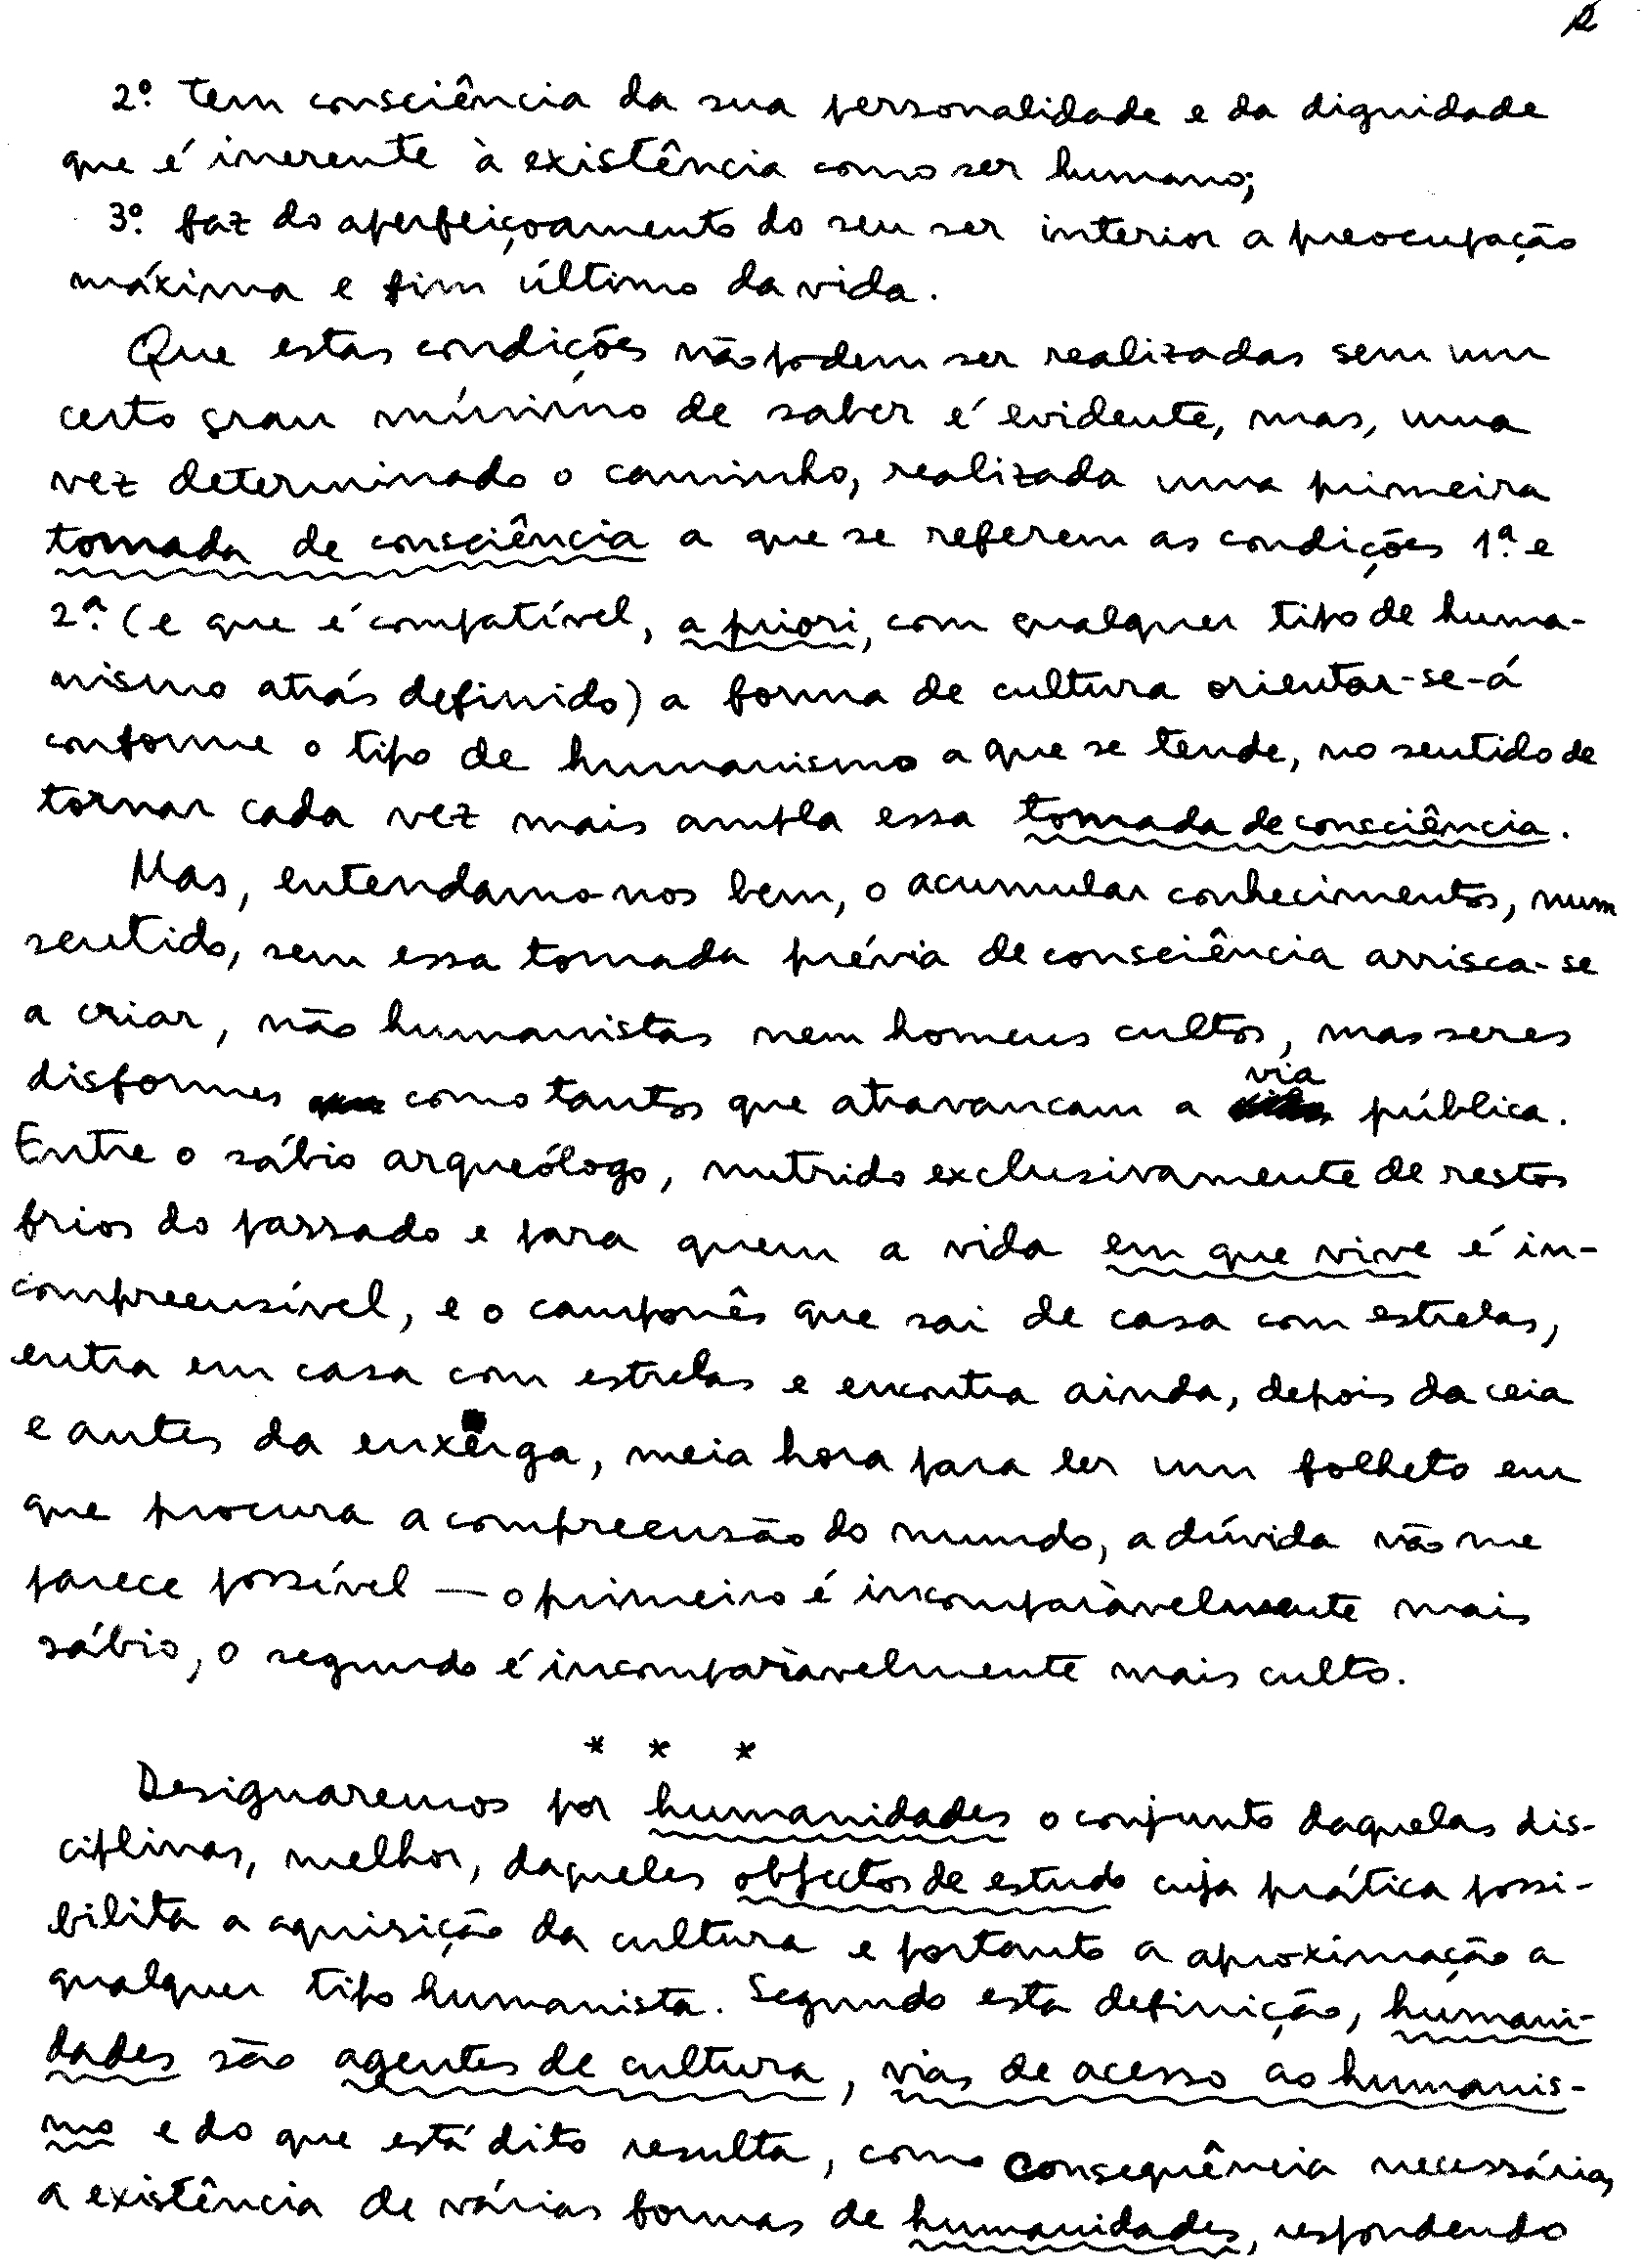 2
2º. tem consciência da sua personalidade e da dignidade
que é inerente à existência como ser humano;
3º. faz do aperfeiçoamento do seu ser interior a preocupação
máxima e fim último da vida.
Que estas condições não podem ser realizadas sem um
certo grau mínimo de saber é evidente, mas, uma
vez determinado o caminho, realizada uma primeira
tomada de consciência a que se referem as condições 1ª. e
2ª. (e que é compatível, a priori, com qualquer tipo de huma-
nismo atrás definido) a forma de cultura orientar-se-á
conforme o tipo de humanismo a que se tende, no sentido de
tornar cada vez mais ampla essa tomada de consciência.
Mas, entendamo-nos bem, o acumular conhecimentos, num
sentido, sem essa tomada prévia de consciência arrisca-se
a criar, não humanistas nem homens cultos, mas seres
disformes como tantos que atravancam a via pública.
Entre o sábio arqueólogo, nutrido exclusivamente de restos
frios do passado e para quem a vida em que vive é in-
compreensível, e o camponês que sai de casa com estrelas,
entra em casa com estrelas e encontra ainda, depois da ceia
e antes da enxerga, meia hora para ler um folheto em
que procura a compreensão do mundo, a dúvida não me
parece possível — o primeiro é incomparàvelmente mais
sábio, o segundo é incomparàvelmente mais culto.
* * *
Designaremos por humanidades o conjunto daquelas dis-
ciplinas, melhor, daqueles objectos de estudo cuja prática possi-
bilita a aquisição da cultura e portanto a aproximação a
qualquer tipo humanista. Segundo esta definição, humani-
dades são agentes de cultura, vias de acesso ao humanis-
mo e do que está dito resulta, como consequência necessária,
a existência de várias formas de humanidades, respondendo